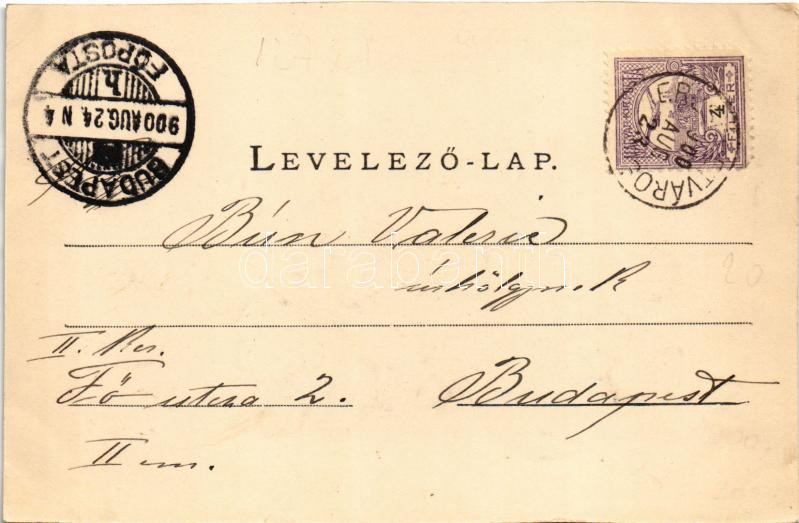 BUDAPEST
900 AUG. 24. N 4
h
FŐPOSTA
4
FILLÉR
900 AUG
LEVELEZŐ-LAP.
Bún Valerie
úrhölgynek
II. Ker.
Fő utcza 2. Budapest
II em.
darabanth
20